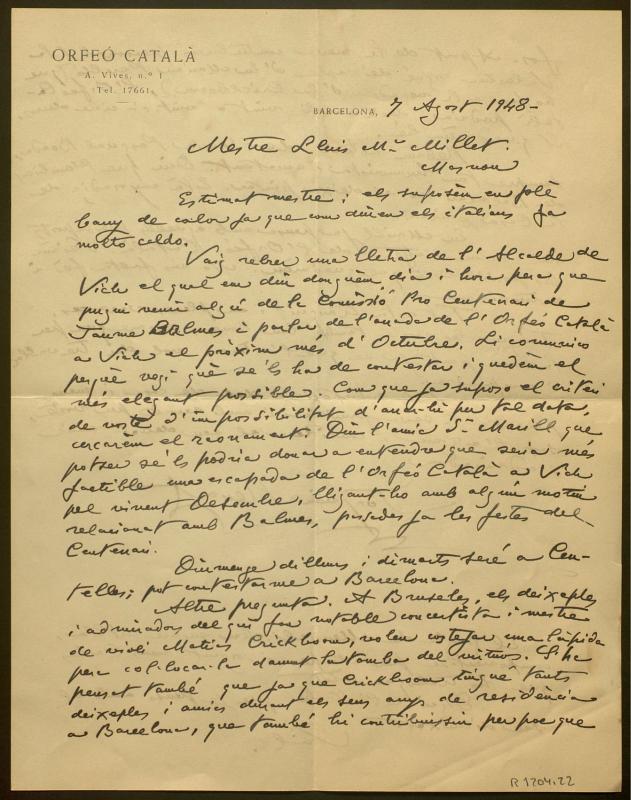 ORFEÓ CATALÀ
A. Vives, n.º 1
Tel. 17661
BARCELONA, 7 Agost 1948-
Mestre Lluis Mª Millet.
Masnou
Estimat mestre: els suposem en ple
bany de calor ja que com diuen els italians fa
molto caldo.
Vaig rebrer una lletra de l'Alcalde de
Vich el qual em diu donguem dia i hora pera que
pugui venir algú de la Comissió Pro Centenari de
Jaume Balmes a parlar de l'anada de l'Orfeó Català
a Vich el pròxim més d'Octubre. Li comunico
perquè vegi què se'ls ha de contestar i quedem el
més elegant possible. Com que ja suposo el criteri
de vostè d'impossibilitat d'anar-hi per tal data,
cercarem el raonament. Diu l'amic Sr. Marill que
potser se'ls podria donar a entendre que seria més
factible una escapada de l'Orfeó Català a Vich
pel vinent Desembre, lligant-ho amb algún motiu
relacionat amb Balmes, passades ja les festes del
Centenari.
Diumenge dilluns i dimarts seré a Cen-
telles; pot contestarme a Barcelona.
Altre pregunta. A Bruseles, els deixeples
i admiradors del qui fou notable concertista i mestre
de violí Mathieu Crickboom, volen costejar una làpida
pera col·locar-la damunt la tomba del virtuós. S'ha
pensat també que ja que Crickboom tingué tants
deixeples i amics durant els seus anys de residència
a Barcelona, que també hi contribuissin per poc que
R 1204.22